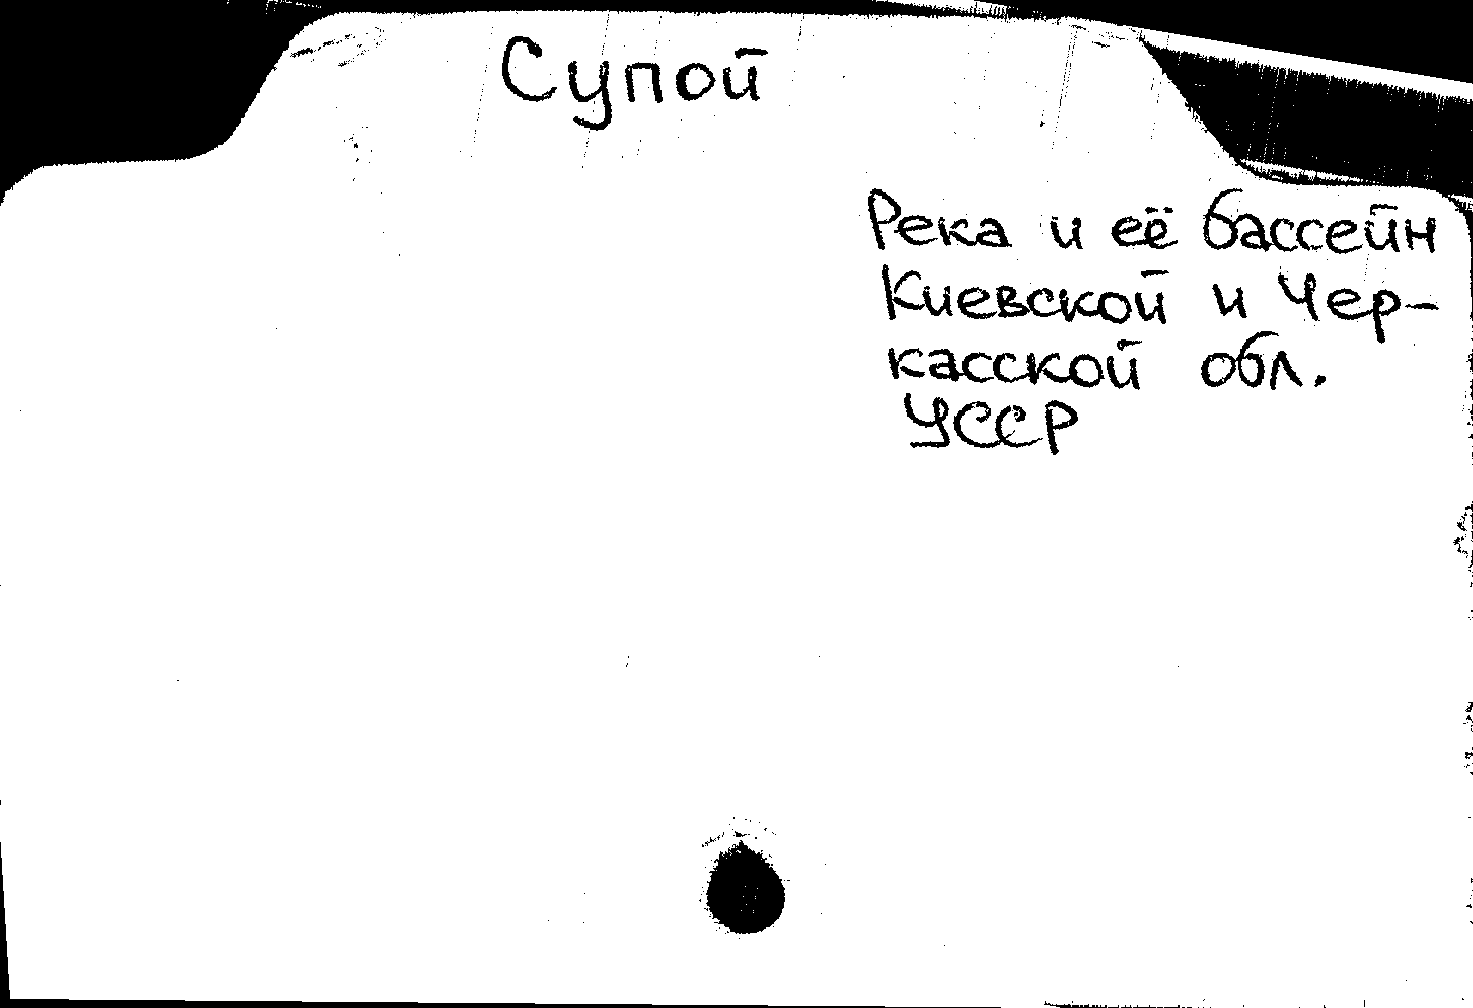 Супой
Река и её бассейн
Киевской и Чер-
касской обл.
УССР